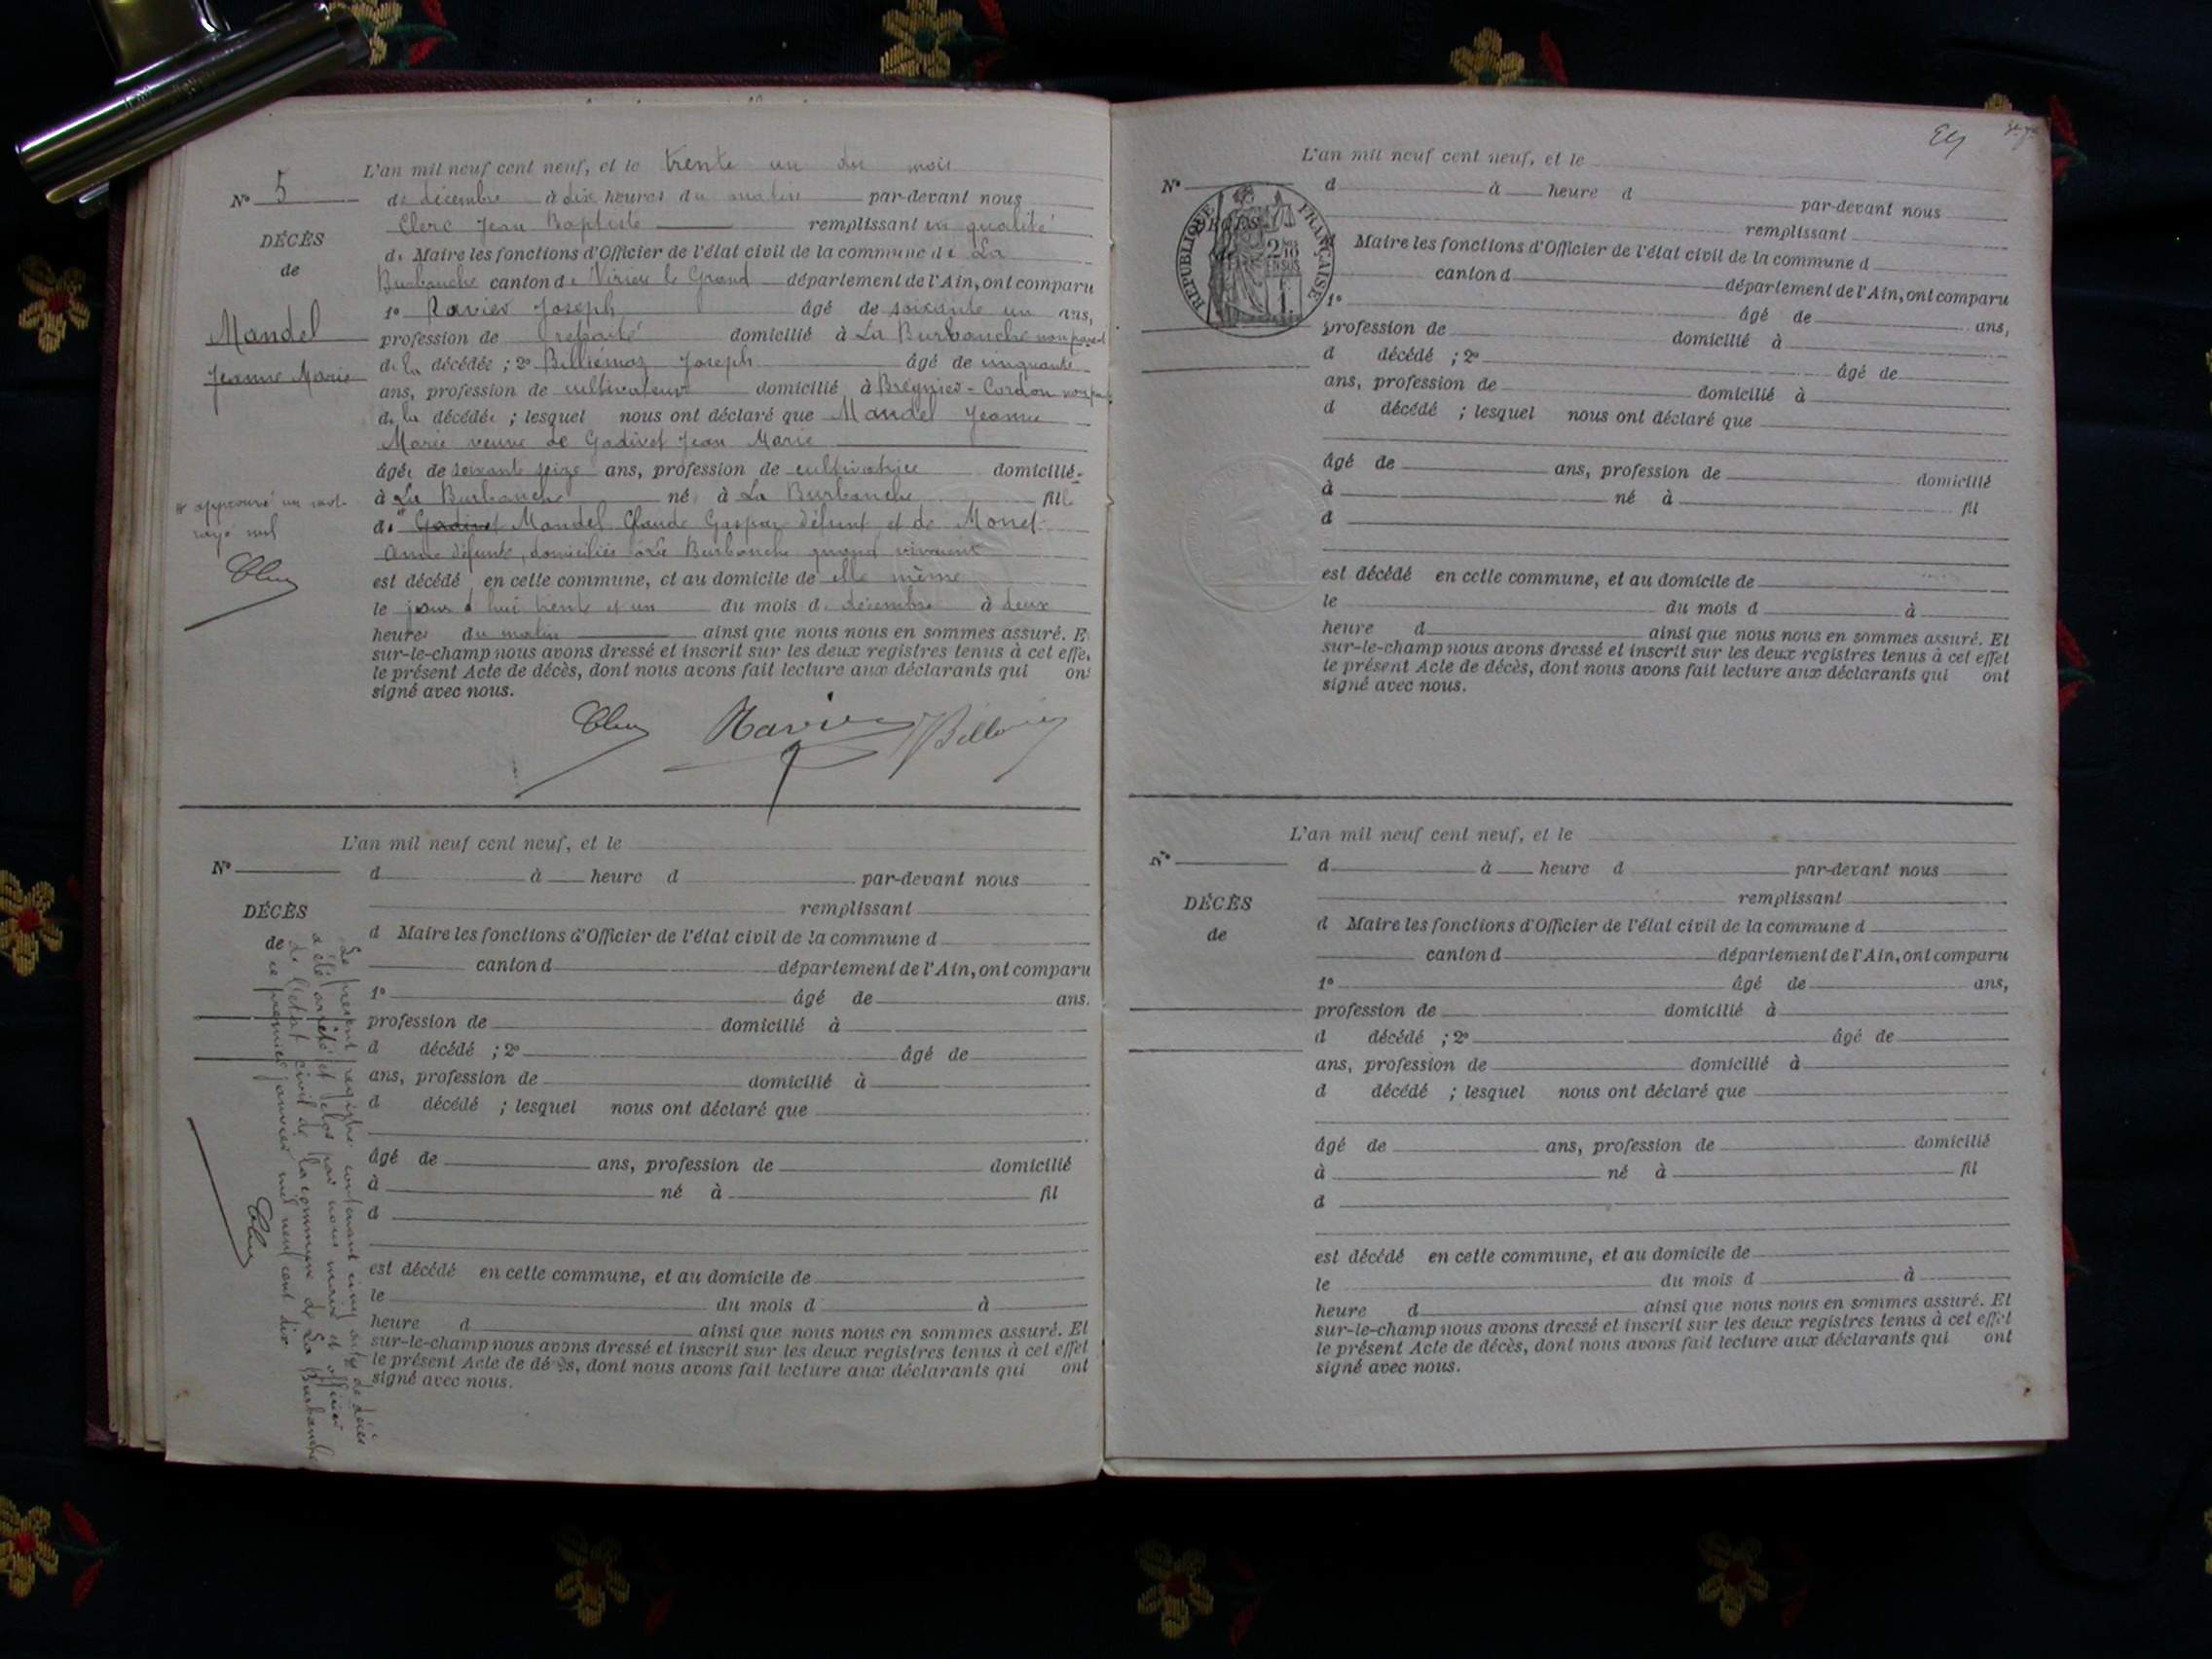 L'an mil neuf cent neuf, et le trente un du mois
N° 5
de décembre à dix heures du matin par-devant nous
Clerc Jean Baptiste remplissant en qualité
DÉCÈS
de
de Maire les fonctions d'Officier de l'état civil de la commune de La
Burbanche canton de Virieu le Grand département de l'Ain, ont comparu
1° Ravier Joseph âgé de soixante un ans,
Mandel
Jeanne Marie
profession de retraité domicilié à La Burbanche non parent
de la décédée ; 2° Billiemaz Joseph âgé de cinquante
ans, profession de cultivateur domicilié à Brégnier-Cordon
de la décédée ; lesquel nous ont déclaré que Mandel Jeanne
Marie veuve de Gadivet Jean Marie
âgée de soixante seize ans, profession de cultivatrice domicilié
à La Burbanche né à La Burbanche fil
de Gadivet Mandel Claude Gaspar défunt et de Monet
Anne défunte, domiciliés à La Burbanche quand vivaient
approuvé un mot
rayé nul
est décédé en cette commune, et au domicile de elle même
le jour d'hui trente et un du mois de décembre à deux
heures du matin ainsi que nous nous en sommes assuré. E
sur-le-champ nous avons dressé et inscrit sur les deux registres tenus à cet effe
le présent Acte de décès, dont nous avons fait lecture aux déclarants qui on
signé avec nous.
Ravier
L'an mil neuf cent neuf, et le
N°
d à heure d par-devant nous
remplissant
DÉCÈS
de
d Maire les fonctions d'Officier de l'état civil de la commune d
canton d département de l'Ain, ont comparu
1° âgé de ans.
profession de domicilié à
d décédé ; 2° âgé de
ans, profession de domicilié à
d décédé ; lesquel nous ont déclaré que
âgé de ans, profession de domicilié
à né à fil
d
est décédé en cette commune, et au domicile de
le du mois d à
heure d ainsi que nous nous en sommes assuré. Et
sur-le-champ nous avons dressé et inscrit sur les deux registres tenus à cet effet
le présent Acte de décès, dont nous avons fait lecture aux déclarants qui ont
signé avec nous.
Le présent registre contenant cinq actes de décès
a été arrêté et clos par nous maire et officier
de l'état civil de la commune de La Burbanche
ce premier janvier mil neuf cent dix
L'an mil neuf cent neuf, et le
N°
d à heure d par-devant nous
remplissant
RÉPUBLIQUE FRANÇAISE
d Maire les fonctions d'Officier de l'état civil de la commune d
canton d département de l'Ain, ont comparu
1° âgé de ans,
profession de domicilié à
d décédé ; 2° âgé de
ans, profession de domicilié à
d décédé ; lesquel nous ont déclaré que
âgé de ans, profession de domicilié
à né à fil
d
est décédé en cette commune, et au domicile de
le du mois d à
heure d ainsi que nous nous en sommes assuré. Et
sur-le-champ nous avons dressé et inscrit sur les deux registres tenus à cet effet
le présent Acte de décès, dont nous avons fait lecture aux déclarants qui ont
signé avec nous.
L'an mil neuf cent neuf, et le
N°
d à heure d par-devant nous
remplissant
DÉCÈS
de
d Maire les fonctions d'Officier de l'état civil de la commune d
canton d département de l'Ain, ont comparu
1° âgé de ans,
profession de domicilié à
d décédé ; 2° âgé de
ans, profession de domicilié à
d décédé ; lesquel nous ont déclaré que
âgé de ans, profession de domicilié
à né à fil
d
est décédé en cette commune, et au domicile de
le du mois d à
heure d ainsi que nous nous en sommes assuré. Et
sur-le-champ nous avons dressé et inscrit sur les deux registres tenus à cet effet
le présent Acte de décès, dont nous avons fait lecture aux déclarants qui ont
signé avec nous.